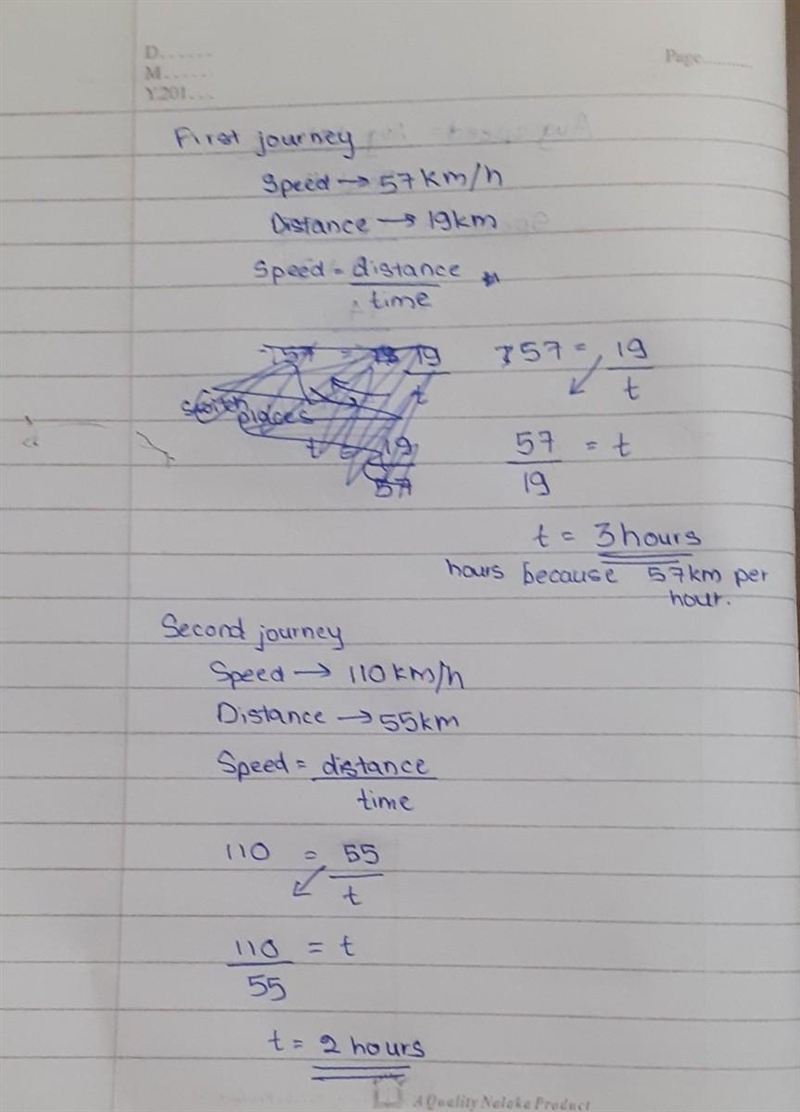 D......
M......
Y201...
Page...........
First journey
Speed → 57 km/h
Distance → 19km
Speed = distance
time
57 = 19
t
switch places
t = 19
57
57 = 19
t
57 = t
19
t = 3 hours
hours because 57km per
hour.
Second journey
Speed → 110 km/h
Distance → 55km
Speed = distance
time
110 = 55
t
110 = t
55
t = 2 hours
A Quality Nalaka Product